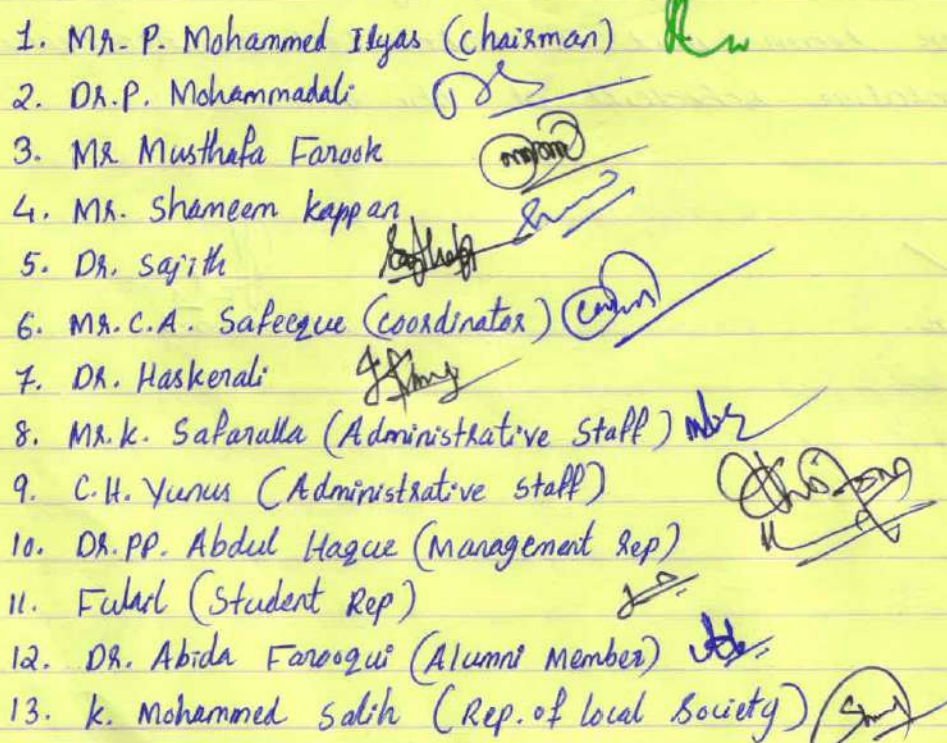 1. Mr. P. Mohammed Ilyas (Chairman)
2. Dr. P. Mohammadali
3. Mr Musthafa Farook
4. Mr. Shameem kappan
5. Dr. Sajith
6. Mr. C.A. Safeeque (coordinator)
7. Dr. Haskerali
8. Mr. k. Safarulla (Administrative Staff)
9. C.H. Yunus (Administrative staff)
10. Dr. PP. Abdul Haque (Management Rep)
11. (Student Rep)
12. Dr. Abida Farooqui (Alumni Member)
13. k. Mohammed Salih (Rep. of local Society)